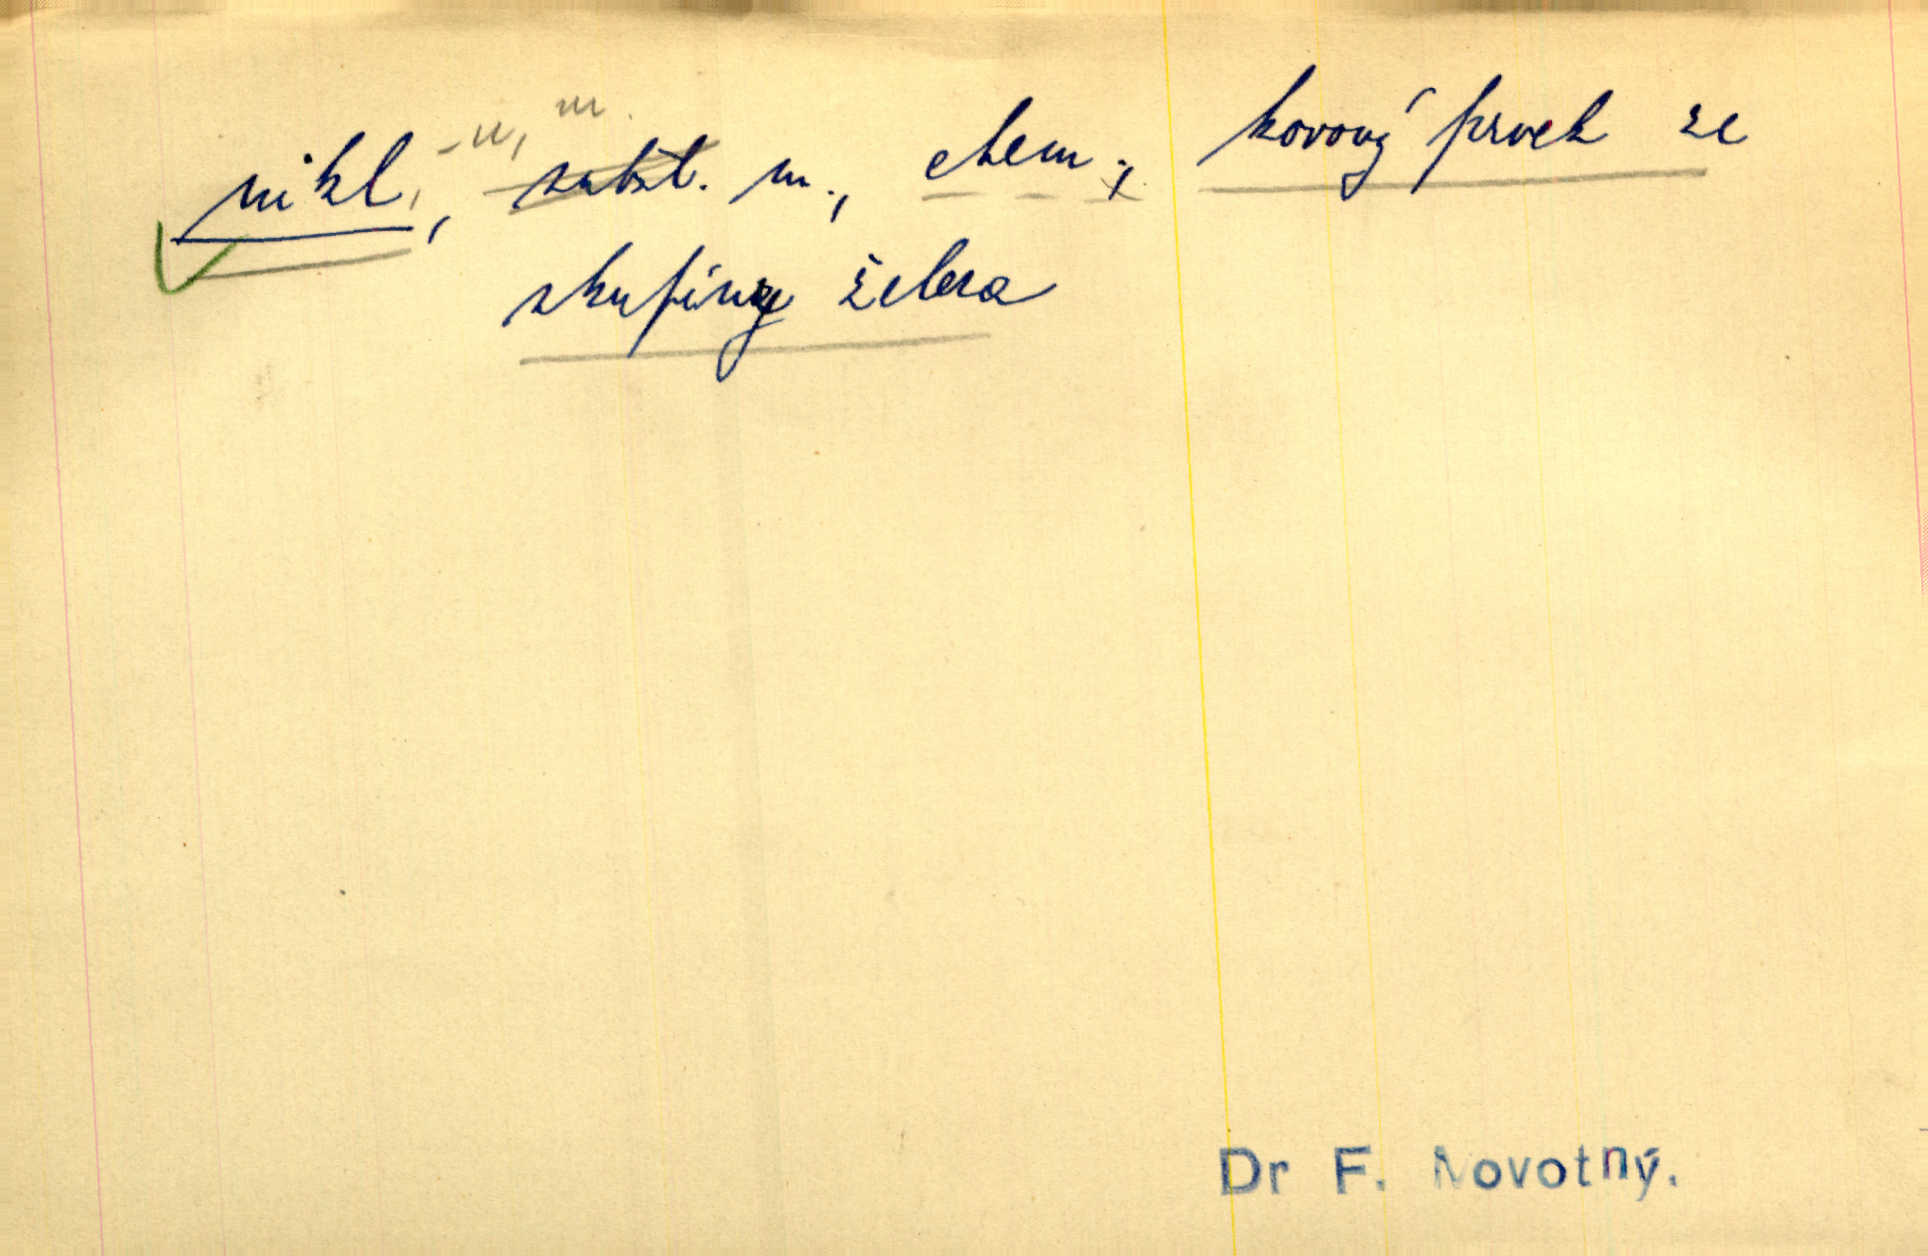 nikl, -u, m.
subst. m., chem., kovový prvek ze
skupiny železa
Dr F. Novotný.